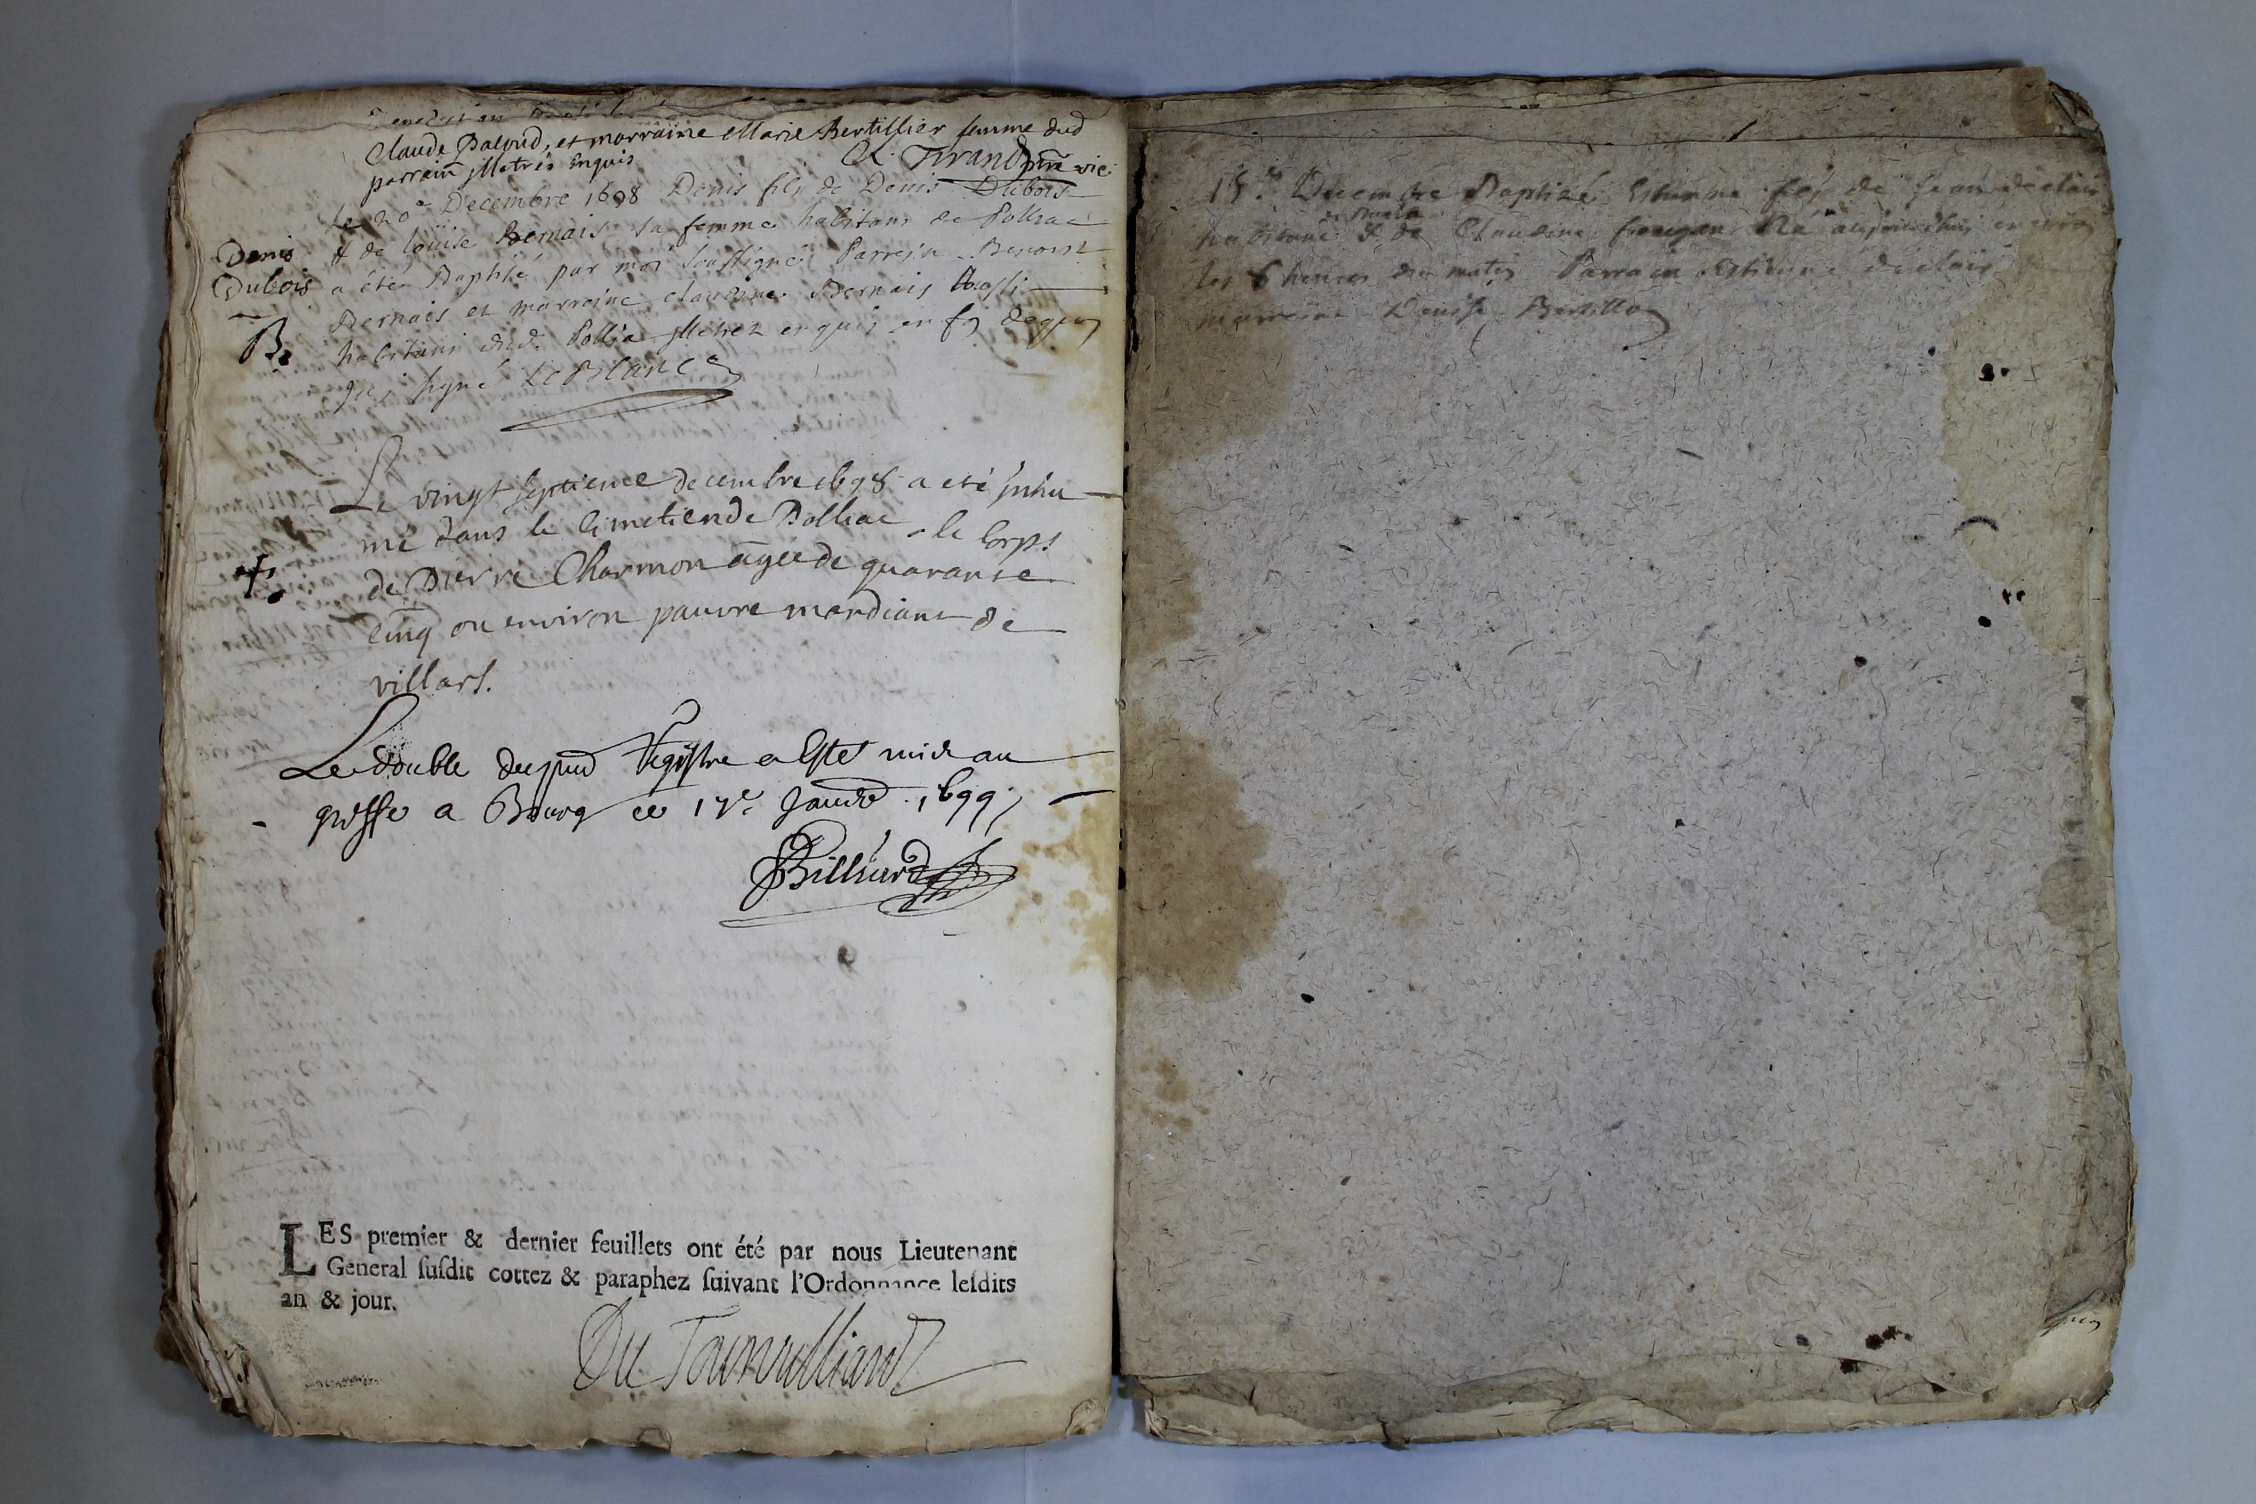 Claude Paloud, et marraine Marie Bertillier femme dud
parrain illetrés enquis
Cl. Tirand ptre vic.
Le 20e Decembre 1698 Denis fils de Denis Dubois
& de loüise Bernais sa femme habitans de Polliac
Denis
Dubois
a été Baptisé par moi soussigné Parrein Benoist
Bernais et marraine claudine Bernais Aussi
B.
habitans dud. Pollia illetrez enquis en foy dequoy
j'ai signé LeBlanc
Le vingt septieme decembre 1698 a eté inhu
mé dans le Cimetiere de Polliac le Corps
+
de Pierre Charmon agée de quarante
cinq ou environ pauvre mandiant de
villars.
Le double du pnt Registre a Esté mis au
greffe a Bourg ce 17e Janvr. 1699
Billiard
LES premier & dernier feuillets ont été par nous Lieutenant
General ſuſdit cottez & paraphez ſuivant l'Ordonnance leſdits
an & jour.
15e Decembre Baptizé Estienne fils de Jean
habitans & de Claudine né aujourdhuy environ
les 6 heures du matin Parrain Estienne
marraine Denise Bertillo